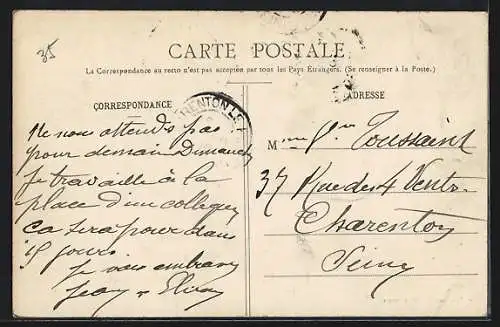 35
CARTE POSTALE
La Correspondance au recto n'est pas acceptée par tous les Pays Étrangers. (Se renseigner à la Poste.)
CORRESPONDANCE
RENTON LE
Ne nous attends pas
pour demain Dimanche
je travaille à la
place d'un collègue
ca sera pour dans
15 jours
Je vous embrasse
Jean
ADRESSE
M me Toussaint
37 Rue des 4 Vents
Charenton
Seine